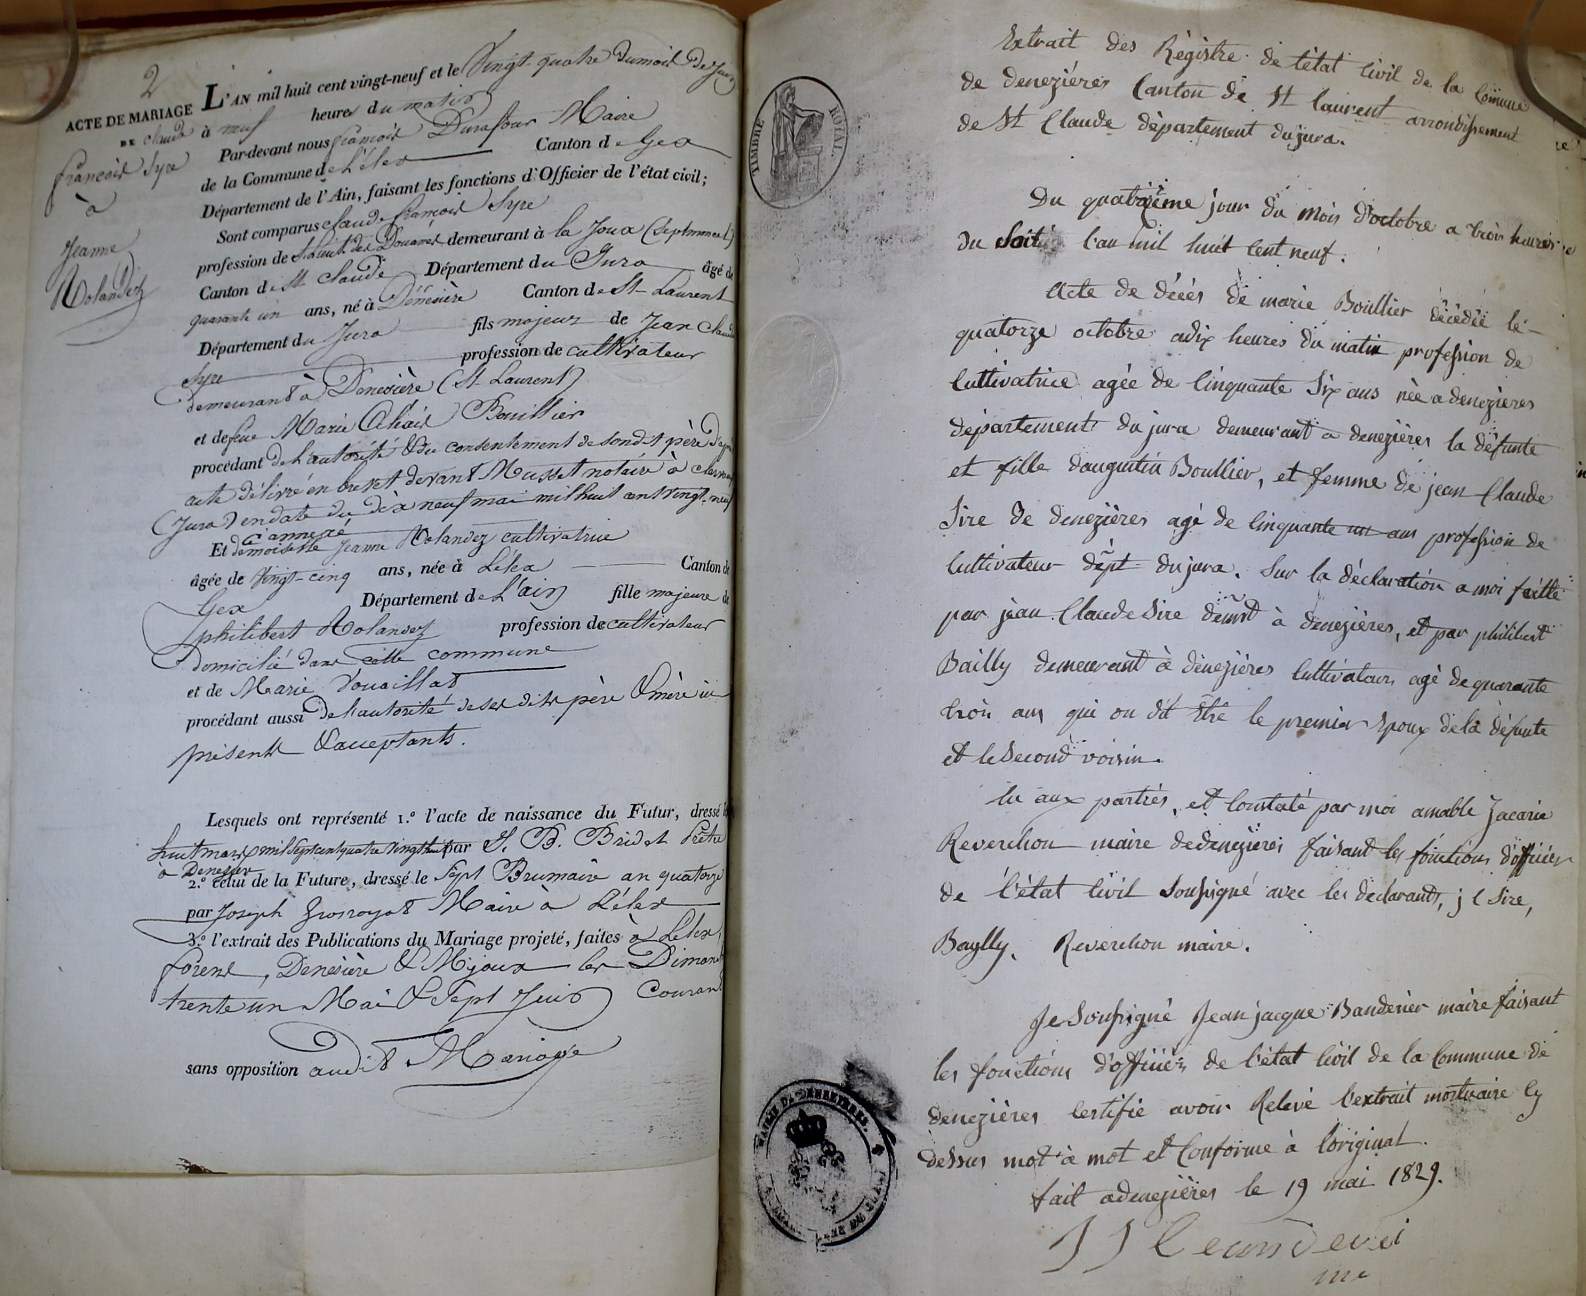 2
ACTE DE MARIAGE
DE Claude
françois Syre
à
Jeanne
Rolandez
L'AN mil huit cent vingt-neuf et le Vingt-quatre du mois de Juin
à neuf heures du matin
Par-devant nous françois Duraffour Maire
de la Commune de Lélex Canton de Gex
Département de l'Ain, faisant les fonctions d'Officier de l'état civil;
Sont comparus claude françois Syre
profession de des Douanes demeurant à la Joux (Septmoncel)
Canton de St Claude Département du Jura âgé de
quarante un ans, né à Dénésière Canton de St Laurent
Département du Jura fils majeur de Jean Claude
Syre profession de cultivateur
demeurant à Denesière (St Laurent)
et de feue Marie Bouillier
procédant de l'autorité & du consentement de sondt père
acte délivré en brevet devant Musset notaire à
(Jura) en date du dix neuf mai mil huit cent vingt-neuf
cy annexé
Et demoiselle Jeanne Rolandez cultivatrice
âgée de Vingt-cinq ans, née à Lélex Canton de
Gex Département de L'ain fille majeure de
philibert Rolandez profession de cultivateur
domicilié dans cette commune
et de Marie
procédant aussi de l'autorité de ses dits père & mère ici
présents & acceptants.
Lesquels ont représenté 1.º l'acte de naissance du Futur, dressé le
huit mars mil sept cent quatre vingt huit par J. B. Prêtre
à Denesière
2.º celui de la Future, dressé le Sept Brumaire an quatorze
par Joseph Grosroyat Maire à Lélex
3.º l'extrait des Publications du Mariage projeté, faites à Lelex,
forens, Denesière & Mijoux les Dimanches
trente un Mai & Sept Juin Courant
sans opposition audit Mariage
Extrait des Régistre de l'état Civil de la Commune
de denezières Canton de St laurent arrondissement
de St Claude département du jura.
TIMBRE ROYAL.
Du quatorzième jour du mois d'octobre a trois heures
du Soir l'an mil huit cent neuf.
Acte de décès de marie Boullier décédée le
quatorze octobre a dix heures du matin profession de
Cultivatrice agée de Cinquante Six ans née a denezières
département du jura demeurant a denezières la défunte
et fille d'augustin Boullier, et femme de jean Claude
Sire de denezières agé de Cinquante un ans profession de
Cultivateur dépt du jura. Sur la déclaration a moi faitte
par jean Claude Sire demrt à denezières, et par philibert
Bailly demeurant à dénezières Cultivateurs agé de quarante
trois ans qui on dit Etre le premier Epoux de la défunte
et le Second voisin.
lu aux parties, et Constaté par moi amable Jacarie
Reverchon maire de denezières faisant les fonctions d'officier
de l'état Civil Soussigné avec les declarants, j C Sire,
Baylly. Reverchon maire.
Je Soussigné Jean jacque Banderier maire faisant
les fonctions d'officier de l'état Civil de la Commune de
denezières Certifie avoir Relevé l'extrait mortuaire Cy
dessus mot à mot et Conforme à l'original.
fait a denezières le 19 mai 1829.
MAIRIE DE DENEZIERES.